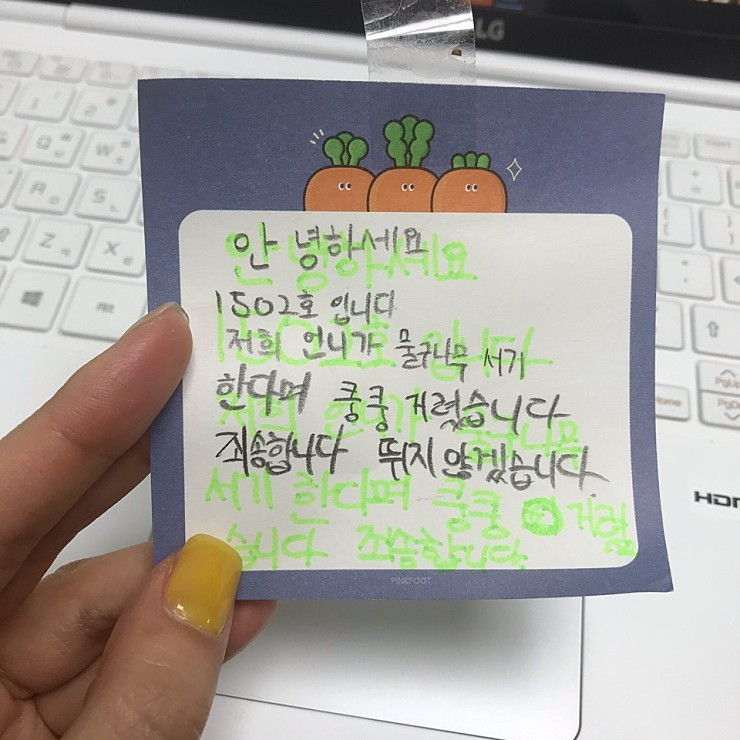 LG
안녕하세요
1502호 입니다
저희 언니가 물구나무 서기
한다며 쿵쿵 거렸습니다
죄송합니다 뛰지 않겠습니다.
안녕하세요
1502호 입니다
저희 언니가 물구나무
서기 한다며 쿵쿵 거렸
습니다 죄송합니다
PINKFOOT
Q W
A S
Z X
Alt
PgUp
Home PgDn